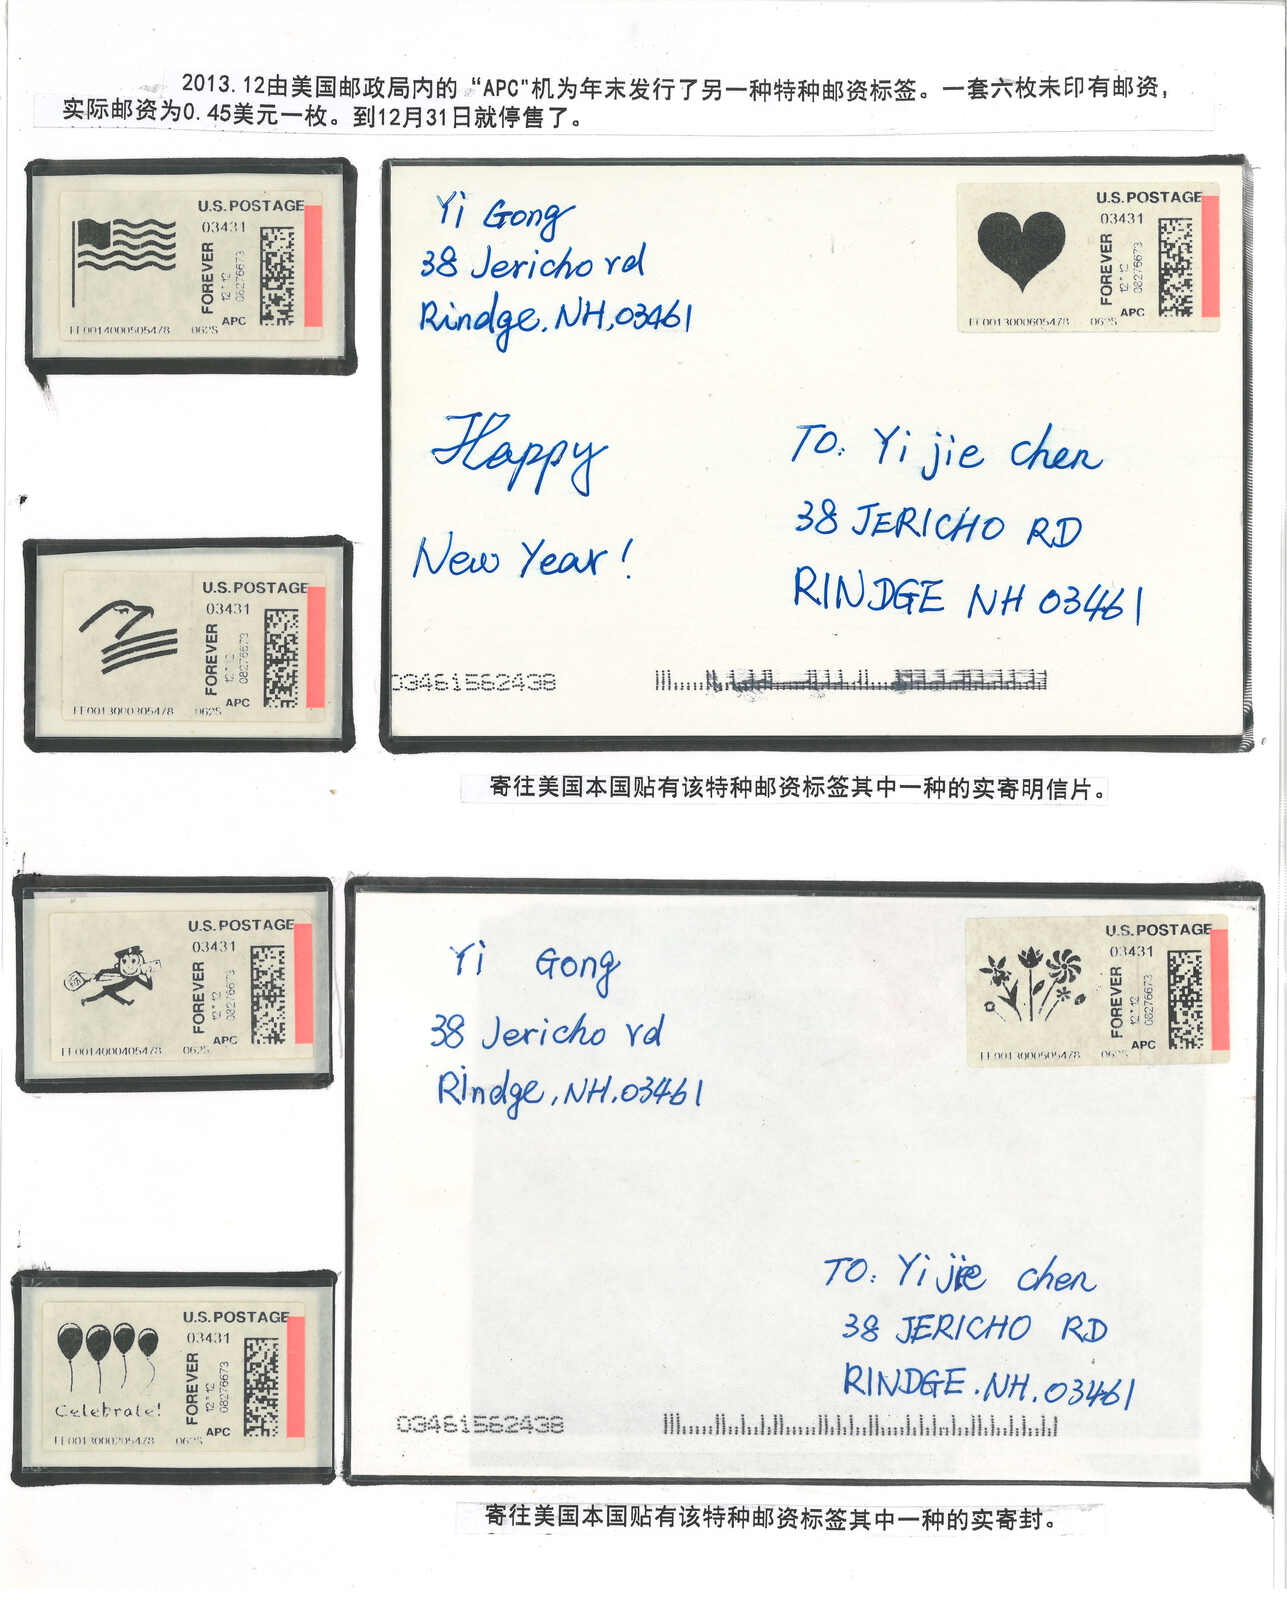 2013.12由美国邮政局内的“APC"机为年末发行了另一种特种邮资标签。一套六枚未印有邮资，
实际邮资为0.45美元一枚。到12月31日就停售了。
U.S. POSTAGE
03431
FOREVER
12*12
08276673
APC
0625
Yi Gong
38 Jericho rd
Rindge, NH, 03461
U.S. POSTAGE
03431
FOREVER
12*12
08276673
APC
0625
Happy
New Year!
TO: Yi jie chen
38 JERICHO RD
RINDGE NH 03461
03461562438
U.S. POSTAGE
03431
FOREVER
12*12
08276673
APC
0625
寄往美国本国贴有该特种邮资标签其中一种的实寄明信片。
U.S. POSTAGE
03431
FOREVER
12*12
08276673
APC
0625
Yi Gong
38 Jericho rd
Rindge, NH. 03461
U.S. POSTAGE
03431
FOREVER
12*12
08276673
APC
TO: Yi jie chen
38 JERICHO RD
RINDGE. NH. 03461
03461562438
U.S. POSTAGE
03431
FOREVER
12*12
08276673
APC
Celebrate!
寄往美国本国贴有该特种邮资标签其中一种的实寄封。